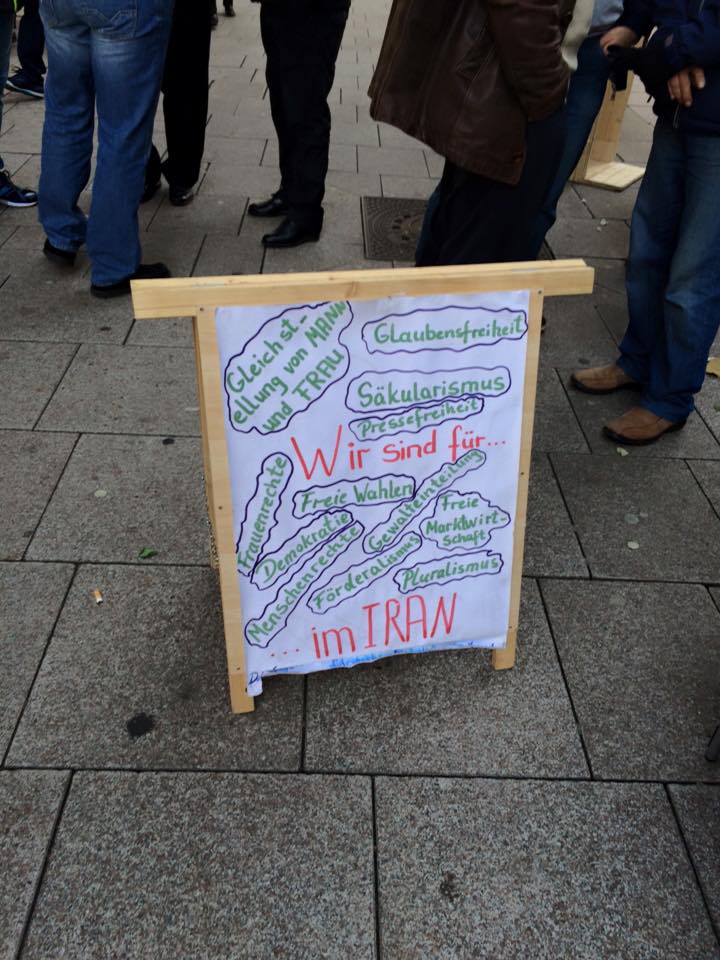 Gleichst-
ellung von MANN
und FRAU
Glaubensfreiheit
Säkularismus
Pressefreiheit
Wir sind für...
Frauenrechte
Freie Wahlen
Gewalteinteilung
Freie
Marktwirt-
schaft
Demokratie
Menschenrechte
Förderalismus
Pluralismus
... im IRAN